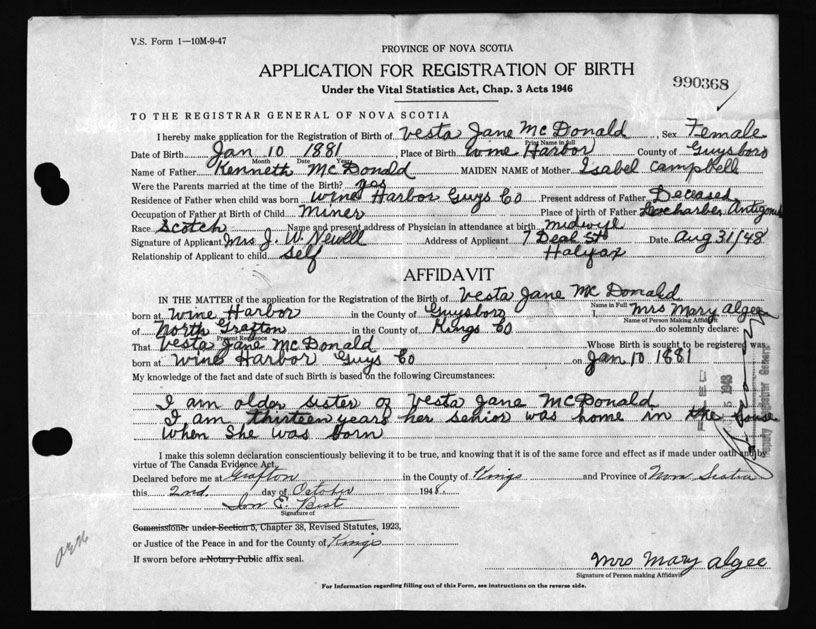 V.S. Form 1—10M-9-47
PROVINCE OF NOVA SCOTIA
APPLICATION FOR REGISTRATION OF BIRTH
990368
Under the Vital Statistics Act, Chap. 3 Acts 1946
TO THE REGISTRAR GENERAL OF NOVA SCOTIA
I hereby make application for the Registration of Birth of Vesta Jane McDonald, Sex Female
Print Name in full
Date of Birth Jan 10 1881, Place of Birth Wine Harbor County of Guysboro
Month Date Year
Name of Father Kenneth McDonald MAIDEN NAME of Mother Isabel Campbell
Were the Parents married at the time of the Birth? yes
Residence of Father when child was born Wine Harbor Guys Co Present address of Father Deceased
Occupation of Father at Birth of Child Miner Place of birth of Father
Race Scotch Name and present address of Physician in attendance at birth midwife
Signature of Applicant Mrs J. W. Newell Address of Applicant 7 Deal St Date Aug 31/48
Relationship of Applicant to child self Halifax
AFFIDAVIT
IN THE MATTER of the application for the Registration of the Birth of Vesta Jane McDonald
Name in Full
born at Wine Harbor in the County of Guysboro I, Mrs Mary Algee
Name of Person Making Affidavit
of North Grafton in the County of Kings Co do solemnly declare:
Present Residence
That Vesta Jane McDonald Whose Birth is sought to be registered was
born at Wine Harbor Guys Co on Jan 10 1881
My knowledge of the fact and date of such Birth is based on the following Circumstances:
I am older sister of Vesta Jane McDonald
I am thirteen years her senior was home in the house
When she was born
I make this solemn declaration conscientiously believing it to be true, and knowing that it is of the same force and effect as if made under oath and by
virtue of The Canada Evidence Act.
Declared before me at Grafton in the County of Kings and Province of Nova Scotia
this 2nd day of October 1948.
Signature of
Commissioner under Section 5, Chapter 38, Revised Statutes, 1923,
or Justice of the Peace in and for the County of Kings
If sworn before a Notary Public affix seal.
Mrs Mary Algee
Signature of Person making Affidavit
For Information regarding filling out of this Form, see instructions on the reverse side.